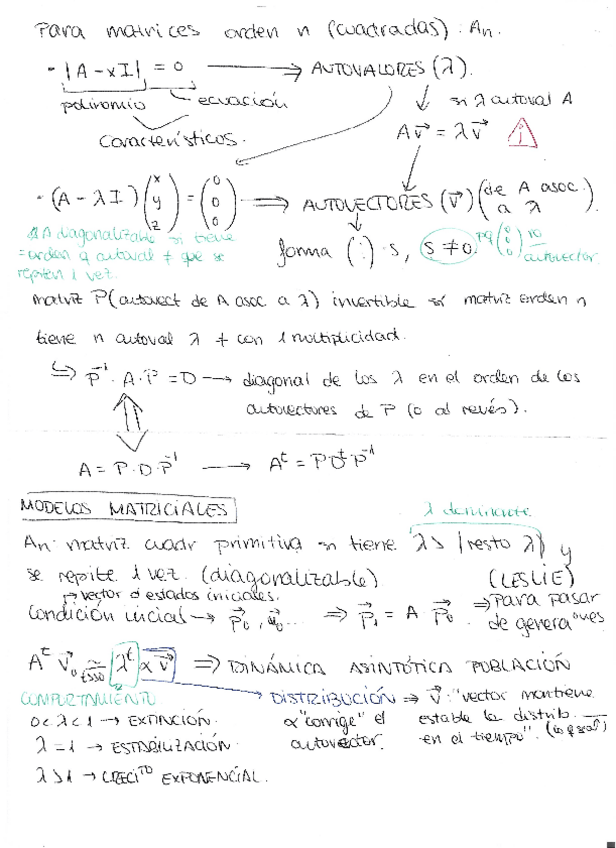 Para matrices orden n (cuadradas): An.
- |A - xI| = 0 ⟶ AUTOVALORES (λ).
polinomio ecuación
característicos.
si λ autoval A
A v⃗ = λ v⃗
- (A - λI) (x y z) = (0 0 0) ⟹ AUTOVECTORES (v⃗) (de A asoc. a λ).
A diagonalizable si tiene
= orden q autoval ≠ que se
repiten 1 vez.
forma (:)·s, s ≠ 0 pq (0 0 0) no
autovector.
matriz P (autovect de A asoc a λ) invertible si matriz orden n
tiene n autoval λ ≠ con 1 multiplicidad.
↪ P⁻¹·A·P = D → diagonal de los λ en el orden de los
autovectores de P (o al revés).
A = P·D·P⁻¹ ⟶ Aᵗ = P Dᵗ P⁻¹
MODELOS MATRICIALES
λ dominante
An matriz cuadr primitiva si tiene λ > |resto λ| y
se repite 1 vez. (diagonalizable) (LESLIE)
↱ vector d estados iniciales.
Condición inicial → P⃗₀, u⃗₀... ⇒ P⃗₁ = A P⃗₀ ⇒ Para pasar
de generaciones
Aᵗ v⃗₀ ≃ λᵗ α v⃗ ⟹ DINÁMICA ASINTÓTICA POBLACIÓN
t→∞
COMPORTAMIENTO
0 < λ < 1 → EXTINCIÓN.
λ = 1 → ESTABILIZACIÓN.
λ > 1 → CRECIᵀᴼ EXPONENCIAL.
DISTRIBUCIÓN ⇒ v⃗: "vector mantiene
α "corrige" el estable la distrib.
autovector. en el tiempo".